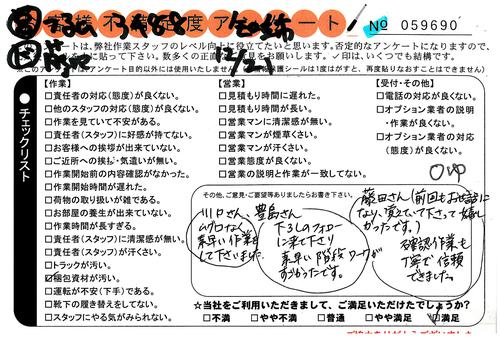 様 不満足度アンケート
No 059690
アンケートは、弊社作業スタッフのレベル向上に役立てたいと思います。否定的なアンケートになりますので、
に貼って下さい。数多くの正直な意見をお願いします。✓印は、いくつでも結構です。
アンケート目的以外には使用いたしません
保護シールは1度はがすと、再度貼りなおすことはできません)
チェックリスト
【作業】
□責任者の対応(態度)が良くない。
□他のスタッフの対応(態度)が良くない。
□作業を見ていて不安がある。
□責任者(スタッフ)に好感が持てない。
□お客様への挨拶が出来ていない。
□ご近所への挨拶・気遣いが無い。
□作業開始前の内容確認がなかった。
□作業開始時間が遅れた。
□荷物の取り扱いが雑である。
□お部屋の養生が出来ていない。
□作業時間が長すぎる。
□責任者(スタッフ)に清潔感が無い。
□責任者(スタッフ)が汗くさい。
□トラックが汚い。
□梱包資材が汚い。
□運転が不安(下手)である。
□靴下の履き替えをしてない。
□スタッフにやる気がみられない。
【営業】
□見積もり時間に遅れた。
□見積もり時間が長い。
□営業マンに清潔感が無い。
□営業マンが煙草くさい。
□営業マンが汗くさい。
□営業態度が良くない。
□営業の説明と作業が一致してない。
【受付・その他】
□電話の対応が良くない。
□オプション業者の説明
・作業が良くない。
□オプション業者の対応
(態度)が良くない。
その他、ご意見・ご要望等ありましたらお書き下さい。
川口さん、豊島さん
ムダなく
素早い作業を
して下さいました。
下3しのフォロー
に来て下さり
素早い階段ワークが
すごかったです。
藤田さん(前回もお世話に
なり、覚えていて下さって嬉し
かったです。)
確認作業も
丁寧で信頼
できました。
☆当社をご利用いただきまして、ご満足いただけたでしょうか?
□不満 □やや不満 □普通 □やや満足 ☑満足